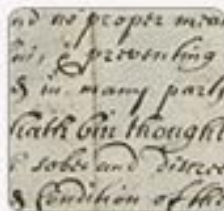 nd no proper mean
preventing
& in many part
hath bin thought
sober and discree
& Condition of the